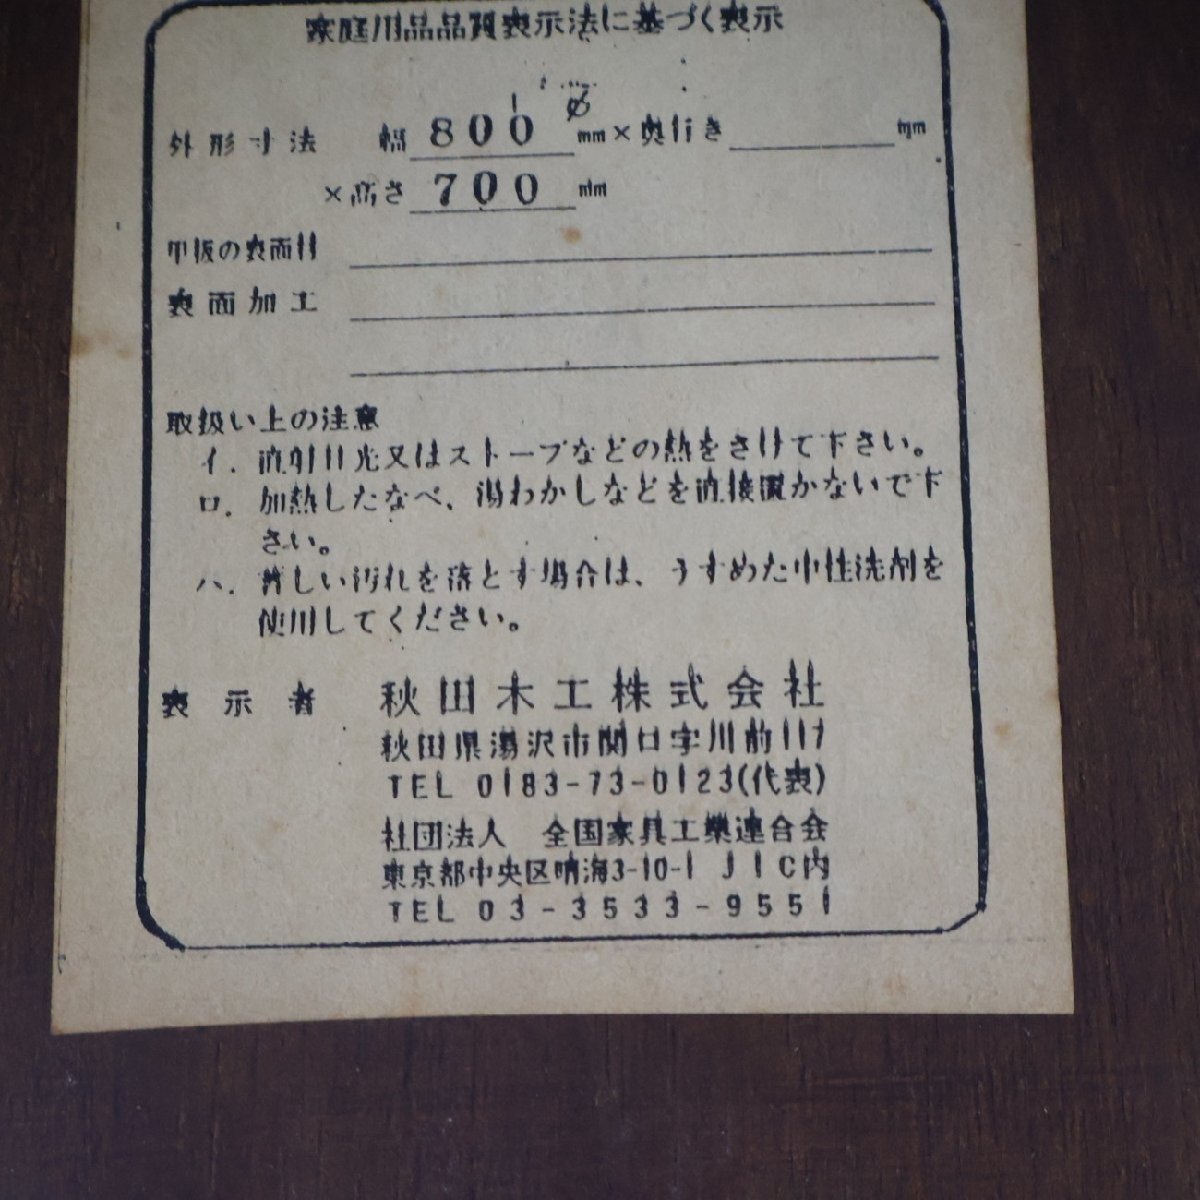 家庭用品品質表示法に基づく表示
外形寸法 幅 800 φ mm × 奥行き mm
×高さ 700 mm
甲板の表面材
表面加工
取扱い上の注意
イ. 直射日光又はストーブなどの熱をさけて下さい。
ロ. 加熱したなべ、湯わかしなどを直接置かないで下
さい。
ハ. 著しい汚れを落とす場合は、うすめた中性洗剤を
使用してください。
表示者 秋田木工株式会社
秋田県湯沢市関口字川前117
TEL 0183-73-0123(代表)
社団法人 全国家具工業連合会
東京都中央区晴海3-10-1 JIC内
TEL 03-3533-9551